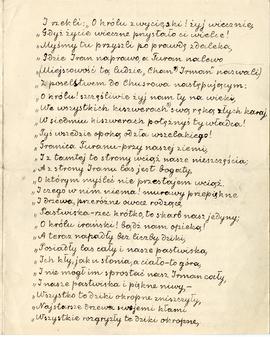 I rzekli: „O królu zwycięski! żyj wiecznie,
„Gdyż życie wieczne przystało ci wielce!
„Myśmy tu przyszli po prawdę zdaleka,
„Gdzie Iran naprawo, a Turan nalewo
„(Miejscowość tą ludzie, Chan” Irman” nazwali)
„Z poselstwem do Chusrowa następującym:
„O królu! szczęśliwie żyj nam ty na wieki,
„We wszystkich kiszwerach” swą ręką złych karaj
„W siedmiu kiszwerach potężnyś ty władca!
„Tyś wszędzie opoką od zła wszelakiego!
„Granica Turanu - przy naszej ziemi,
„I z tamtej to strony wciąż nasze nieszczęścia;
„A z strony Iranu las jest bogaty,
„O którym myśleć nie przestajem wciąż.
„I czego w nim niema! murawy przepiękne
„I drzewa, przeróżne owoce rodzące.
„Pastwiska - rzec krótko, to skarb nasz jedyny;
„O królu irański! Bądź nam opieką!
„A teraz napadły bez liczby dziki,
„Posiadły las cały i nasze pastwiska,
„Ich kły, jak u słonia, a ciało - to góra,
„I nie mógł im sprostać nasz Irman cały,
„I nasze pastwiska i piękne niwy, -
„Wszystko to dziki okropne zniszczyły,
„Najstarsze drzewa swojemi kłami
„Wszystkie rozgryzły te dziki okropne,